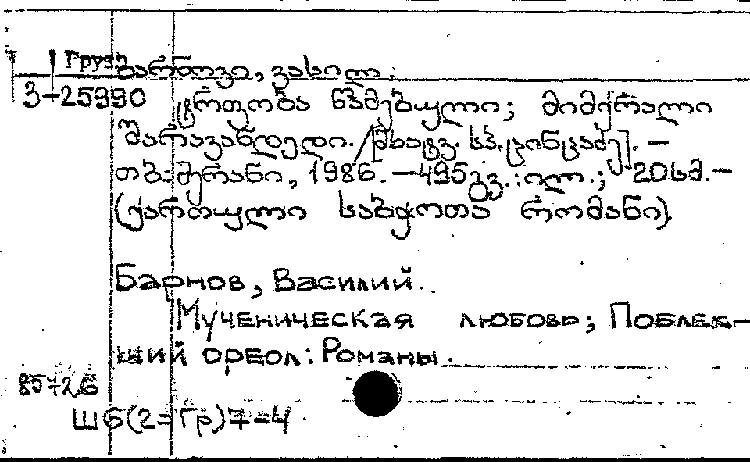 Груз
ბარნოვი, ვასილ.
3-25990
ტრფობა წამებული; მიმქრალი
შარავანდედი. [მხატვ. ს. ცინცაძე]. —
თბ.: მერანი, 1986. — 495 გვ.: ილ.; 20 სმ. —
(ქართული საბჭოთა რომანი)
Барнов, Василий.
Мученическая любовь; Поблек-
ший ореол: Романы.
85726
Ш6(2=Гр)7-4